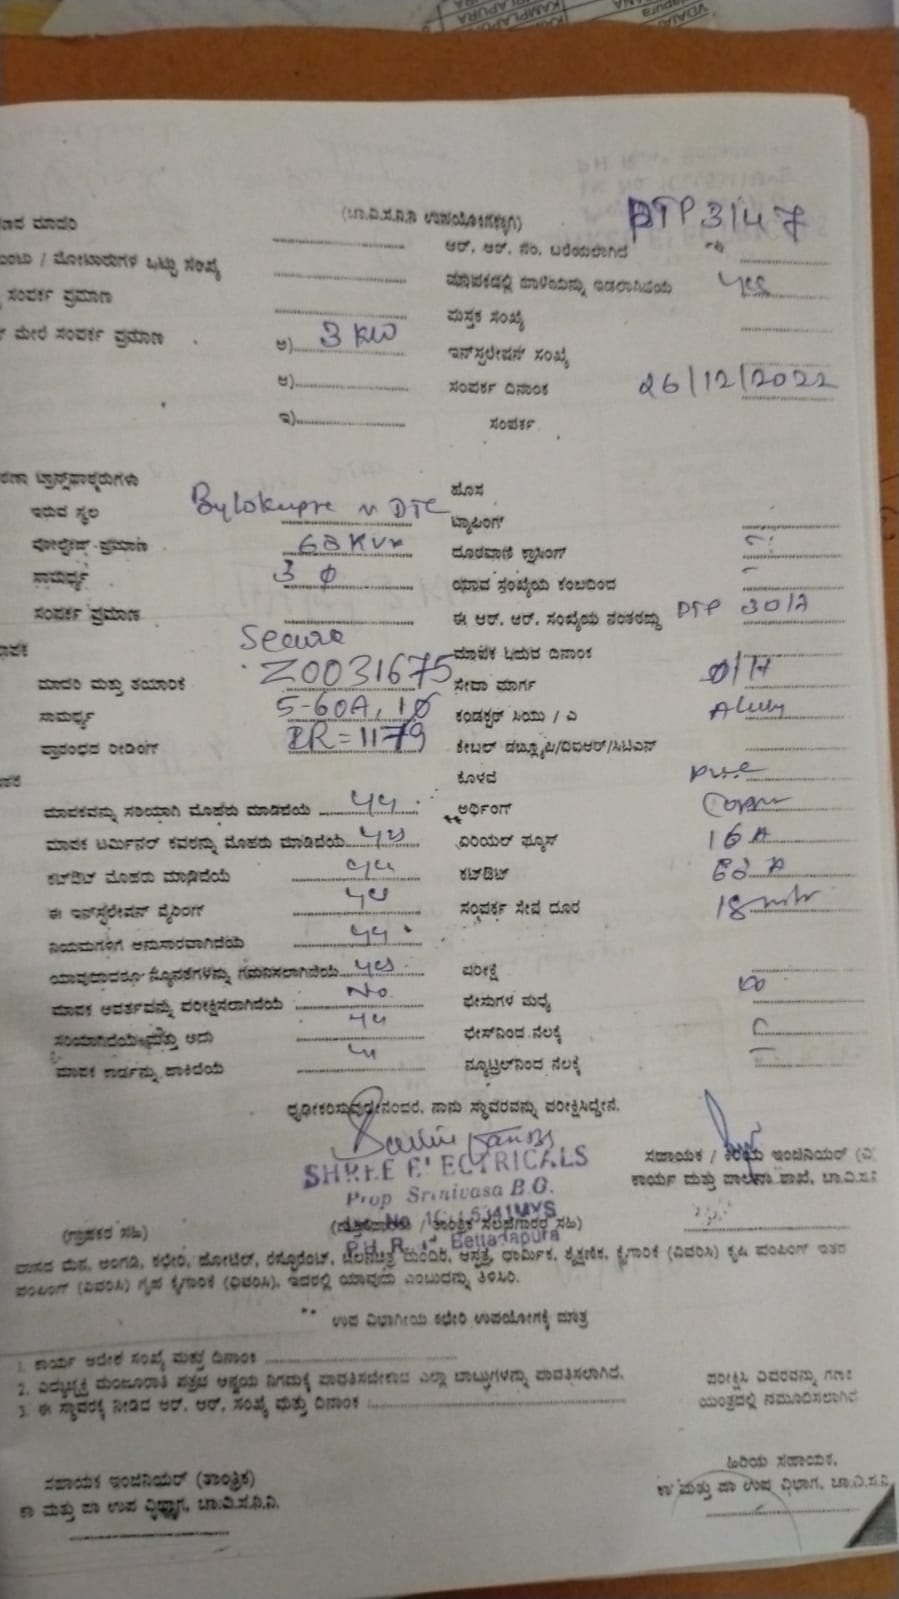 VDAIAH
KAMPLAPURA
(ಚಾ.ವಿ.ಸ.ನಿ.ನಿ ಉಪಯೋಗಕ್ಕಾಗಿ) DTP 3147
ಮಾದರಿ ಆರ್. ಆರ್. ನಂ. ಬರೆಯಲಾಗಿದೆ
/ ಮೋಟಾರುಗಳ ಒಟ್ಟು ಸಂಖ್ಯೆ ಮಾಪಕದಲ್ಲಿ ಇಡಲಾಗಿದೆಯೆ yes
ಸಂಪರ್ಕ ಪ್ರಮಾಣ ಪುಸ್ತಕ ಸಂಖ್ಯೆ
ಮೇಲೆ ಸಂಪರ್ಕ ಪ್ರಮಾಣ ಅ) 3 KW ಇನ್‌ಸ್ಟಲೇಷನ್ ಸಂಖ್ಯೆ
ಆ) ಸಂಪರ್ಕ ದಿನಾಂಕ 26/12/2022
ಇ) ಸಂಪರ್ಕ
ಟ್ರಾನ್ಸ್‌ಫಾರ್ಮರುಗಳು ಹೊಸ
ಇರುವ ಸ್ಥಲ Bylokuppe DTC ಟ್ಯಾಪಿಂಗ್
ವೋಲ್ಟೇಜ್ ಪ್ರಮಾಣ 63 KVA ದೂರವಾಣಿ ಕ್ರಾಸಿಂಗ್
ಸಾಮರ್ಥ್ಯ 3 ϕ ಯಾವ ಸಂಖ್ಯೆಯ ಕಂಬದಿಂದ
ಸಂಪರ್ಕ ಪ್ರಮಾಣ ಈ ಆರ್. ಆರ್. ಸಂಖ್ಯೆಯ ನಂತರದ್ದು DTP
Secure ಮಾಪಕ ಓದುವ ದಿನಾಂಕ
ಮಾದರಿ ಮತ್ತು ತಯಾರಿಕೆ Z0031675 ಸೇವಾ ಮಾರ್ಗ O/H
ಸಾಮರ್ಥ್ಯ 5-60A, 1ϕ ಕಂಡಕ್ಟರ್ ಸಿಯು / ಎ
ಪ್ರಾರಂಭದ ರೀಡಿಂಗ್ IR = 1179 ಕೇಬಲ್ ಡಬ್ಲ್ಯೂಪಿ/ವಿಐಆರ್/ಸಿಟಿಎಸ್
ಕೊಳವೆ PVC
ಮಾಪಕವನ್ನು ಸರಿಯಾಗಿ ಮೊಹರು ಮಾಡಿದೆಯೆ yes ಅರ್ಥಿಂಗ್ Copper
ಮಾಪಕ ಟರ್ಮಿನಲ್ ಕವರನ್ನು ಮೊಹರು ಮಾಡಿದೆಯೆ yes ಏರಿಯಲ್ ಫ್ಯೂಸ್ 16 A
ಕಟ್‌ಔಟ್ ಮೊಹರು ಮಾಡಿದೆಯೆ yes ಕಟ್‌ಔಟ್ A
ಈ ಇನ್‌ಸ್ಟಲೇಷನ್ ವೈರಿಂಗ್ yes ಸಂಪರ್ಕ ಸೇವೆ ದೂರ 18 mtr
ನಿಯಮಗಳಿಗೆ ಅನುಸಾರವಾಗಿದೆಯೆ yes
ಯಾವುದಾದರೂ ನ್ಯೂನತೆಗಳನ್ನು ಗಮನಿಸಲಾಗಿದೆಯೆ yes ಪರೀಕ್ಷೆ
ಮಾಪಕ ಆವರ್ತವನ್ನು ಪರೀಕ್ಷಿಸಲಾಗಿದೆಯೆ No ಫೇಸುಗಳ ಮಧ್ಯೆ
ಸರಿಯಾಗಿದೆಯೆ ಮತ್ತು ಅದು yes ಫೇಸ್‌ನಿಂದ ನೆಲಕ್ಕೆ
ಮಾಪಕ ಕಾರ್ಡನ್ನು ಹಾಕಿದೆಯೆ ನ್ಯೂಟ್ರಲ್‌ನಿಂದ ನೆಲಕ್ಕೆ
ದೃಢೀಕರಿಸುವುದೇನೆಂದರೆ, ನಾನು ಸ್ಥಾವರವನ್ನು ಪರೀಕ್ಷಿಸಿದ್ದೇನೆ.
SHREE ELECTRICALS
Prop Srinivasa B.G.
P.H. R. Bettadapura
ಸಹಾಯಕ / ಕಿರಿಯ ಇಂಜಿನಿಯರ್
ಕಾರ್ಯ ಮತ್ತು ಪಾಲನಾ ಶಾಖೆ, ಚಾ.ವಿ.ಸ.ನಿ
(ಗ್ರಾಹಕರ ಸಹಿ) / ತಾಂತ್ರಿಕ ಸಲಹೆಗಾರರ ಸಹಿ)
ವಾಸದ ಮನೆ, ಅಂಗಡಿ, ಕಛೇರಿ, ಹೋಟೆಲ್, ರೆಸ್ಟೋರೆಂಟ್, ಚಲನಚಿತ್ರ ಮಂದಿರ, ಆಸ್ಪತ್ರೆ, ಧಾರ್ಮಿಕ, ಶೈಕ್ಷಣಿಕ, ಕೈಗಾರಿಕೆ (ವಿವರಿಸಿ) ಕೃಷಿ ಪಂಪಿಂಗ್ ಇತರ
ಪಂಪಿಂಗ್ (ವಿವರಿಸಿ) ಗೃಹ ಕೈಗಾರಿಕೆ (ವಿವರಿಸಿ), ಇದರಲ್ಲಿ ಯಾವುದು ಎಂಬುದನ್ನು ತಿಳಿಸಿರಿ.
** ಉಪ ವಿಭಾಗೀಯ ಕಛೇರಿ ಉಪಯೋಗಕ್ಕೆ ಮಾತ್ರ
1. ಕಾರ್ಯ ಆದೇಶ ಸಂಖ್ಯೆ ಮತ್ತು ದಿನಾಂಕ
2. ವಿದ್ಯುಚ್ಛಕ್ತಿ ಮಂಜೂರಾತಿ ಪತ್ರದ ಅನ್ವಯ ನಿಗಮಕ್ಕೆ ಪಾವತಿಸಬೇಕಾದ ಎಲ್ಲಾ ಬಾಬ್ತುಗಳನ್ನು ಪಾವತಿಸಲಾಗಿದೆ.
3. ಈ ಸ್ಥಾವರಕ್ಕೆ ನೀಡಿದ ಆರ್. ಆರ್. ಸಂಖ್ಯೆ ಮತ್ತು ದಿನಾಂಕ :
ಪರೀಕ್ಷಿಸಿ ವಿವರವನ್ನು ಗಣಕ
ಯಂತ್ರದಲ್ಲಿ ನಮೂದಿಸಲಾಗಿದೆ
ಸಹಾಯಕ ಇಂಜಿನಿಯರ್ (ತಾಂತ್ರಿಕ) ಹಿರಿಯ ಸಹಾಯಕ,
ಕಾ ಮತ್ತು ಪಾ ಉಪ ವಿಭಾಗ, ಚಾ.ವಿ.ಸ.ನಿ.ನಿ. ಕಾ ಮತ್ತು ಪಾ ಉಪ ವಿಭಾಗ, ಚಾ.ವಿ.ಸ.ನಿ